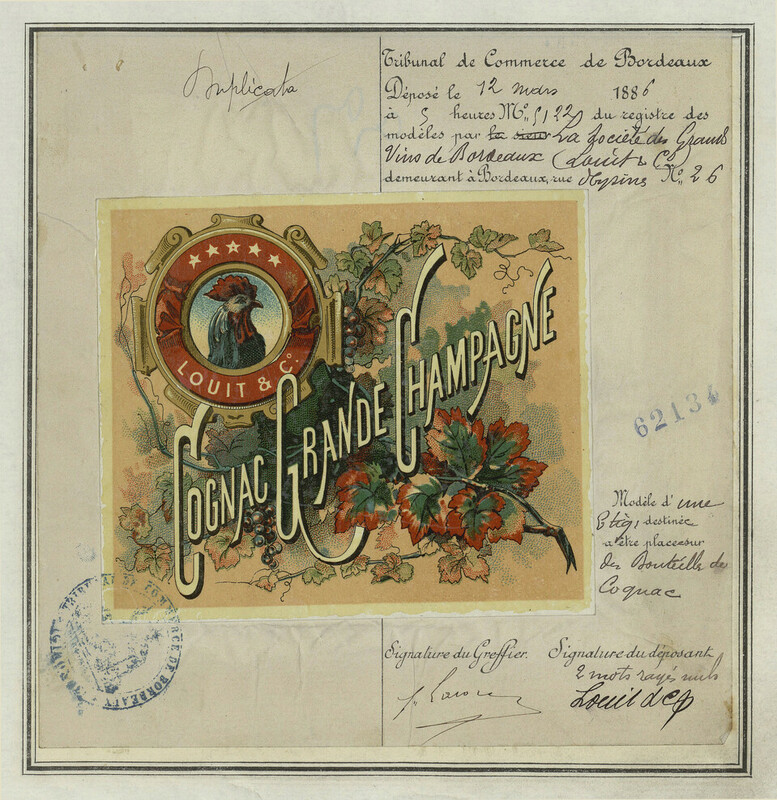 Duplicata
Tribunal de Commerce de Bordeaux
Déposé le 12 mars 1886
à 5 heures Mo. N° 5122 du registre des
modèles par le sieur La Société des Grands
Vins de Bordeaux (Louit & Co)
demeurant à Bordeaux, rue No. 26
LOUIT & Co.
COGNAC GRANDE CHAMPAGNE
62134
Modèle d'une
Etiq, destinée
a être placée sur
des Bouteilles de
Cognac
TRIBUNAL DE COMMERCE DE BORDEAUX
Signature du Greffier. Signature du déposant
2 mots rayés nuls
Louit & Co